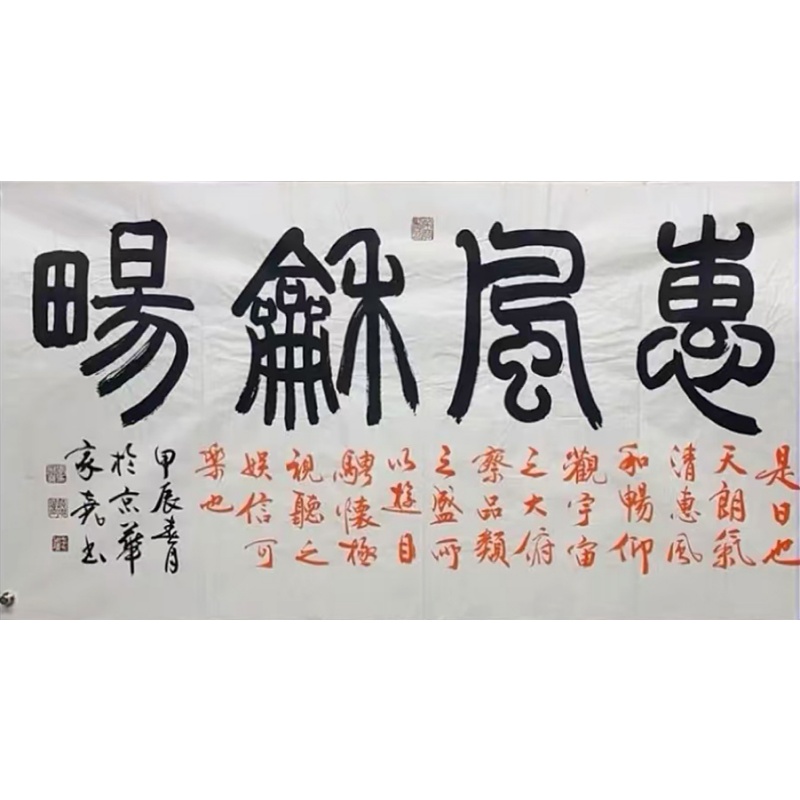 惠風龢畼
是日也
天朗氣
清惠風
和暢仰
觀宇宙
之大俯
察品類
之盛所
以遊目
騁懷極
視聽之
娛信可
樂也
甲辰春月
於京華
家堯书